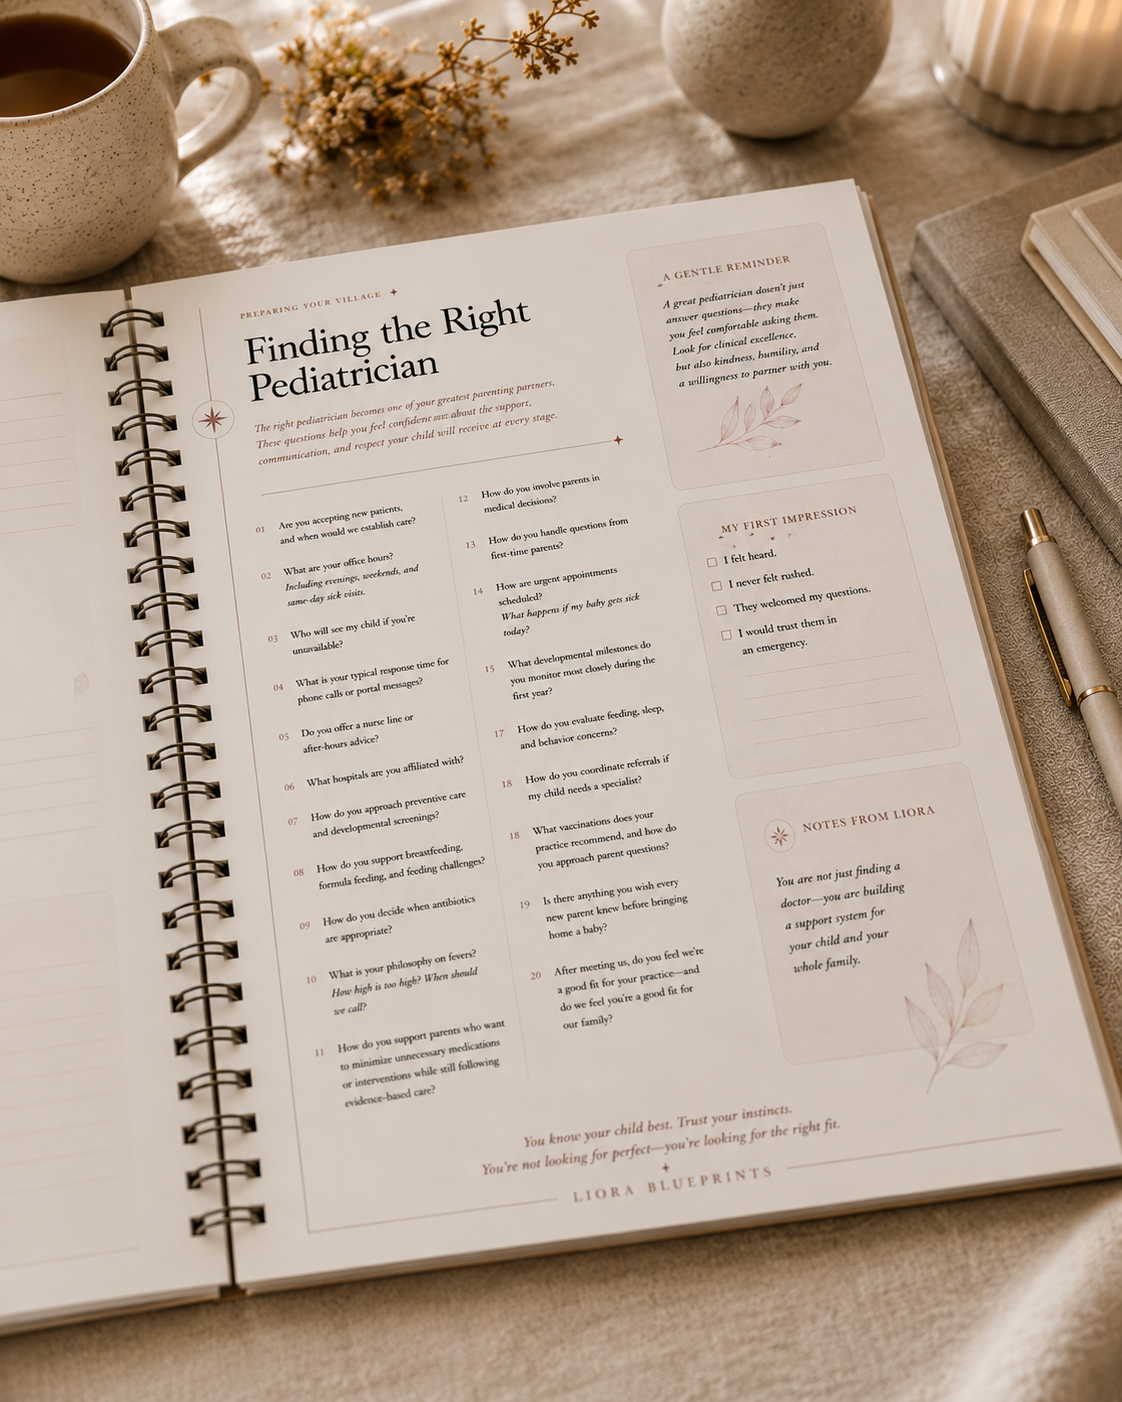 PREPARING YOUR VILLAGE
Finding the Right
Pediatrician
The right pediatrician becomes one of your greatest parenting partners.
These questions help you feel confident about the support,
communication, and respect your child will receive at every stage.
01 Are you accepting new patients,
and when would we establish care?
02 What are your office hours?
Including evenings, weekends, and
same-day sick visits.
03 Who will see my child if you're
unavailable?
04 What is your typical response time for
phone calls or portal messages?
05 Do you offer a nurse line or
after-hours advice?
06 What hospitals are you affiliated with?
07 How do you approach preventive care
and developmental screenings?
08 How do you support breastfeeding,
formula feeding, and feeding challenges?
09 How do you decide when antibiotics
are appropriate?
10 What is your philosophy on fevers?
How high is too high? When should
we call?
11 How do you support parents who want
to minimize unnecessary medications
or interventions while still following
evidence-based care?
12 How do you involve parents in
medical decisions?
13 How do you handle questions from
first-time parents?
14 How are urgent appointments
scheduled?
What happens if my baby gets sick
today?
15 What developmental milestones do
you monitor most closely during the
first year?
17 How do you evaluate feeding, sleep,
and behavior concerns?
18 How do you coordinate referrals if
my child needs a specialist?
18 What vaccinations does your
practice recommend, and how do
you approach parent questions?
19 Is there anything you wish every
new parent knew before bringing
home a baby?
20 After meeting us, do you feel we're
a good fit for your practice—and
do we feel you're a good fit for
our family?
A GENTLE REMINDER
A great pediatrician dosen't just
answer questions—they make
you feel comfortable asking them.
Look for clinical excellence,
but also kindness, humility, and
a willingness to partner with you.
MY FIRST IMPRESSION
I felt heard.
I never felt rushed.
They welcomed my questions.
I would trust them in
an emergency.
NOTES FROM LIORA
You are not just finding a
doctor—you are building
a support system for
your child and your
whole family.
You know your child best. Trust your instincts.
You're not looking for perfect—you're looking for the right fit.
LIORA BLUEPRINTS